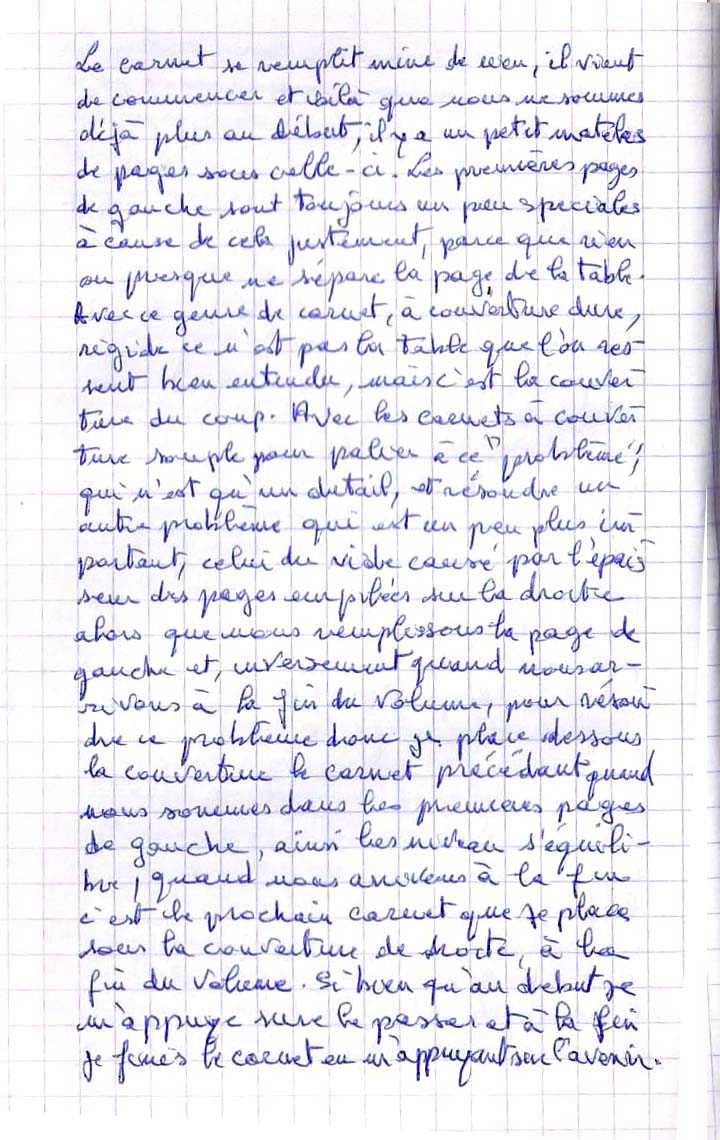 Le carnet se remplit mine de rien, il vient
de commencer et voilà que nous ne sommes
déjà plus au début, il y a un petit matelas
de pages sous celle-ci. Les premières pages
de gauche sont toujours un peu speciales
à cause de cela justement, parce que rien
ou presque ne sépare la page de la table.
Avec ce genre de carnet, à couverture dure,
régide ce n'est pas la table que l'on res-
sent bien entendu, mais c'est la couver
ture du coup. Avec les carnets à couver
ture souple pour palier à ce "problème",
qui n'est qu'un detail, et résoudre un
autre problème qui est un peu plus im
portant, celui du vide causé par l'épais
seur des pages empilées sur la droite
alors que nous remplissons la page de
gauche et, inversement quand nous ar-
rivons à la fin du volume, pour résou
dre ce problème donc je place dessous
la couverture le carnet précédant quand
nous sommes dans les premières pages
de gauche, ainsi les niveau s'équili-
bre, quand nous arrivons à la fin
c'est le prochain carnet que je place
sous la couverture de droite, à la
fin du volume. Si bien qu'au debut je
m'appuye sur le passer et à la fin
je finis le carnet en m'appuyant sur l'avenir.